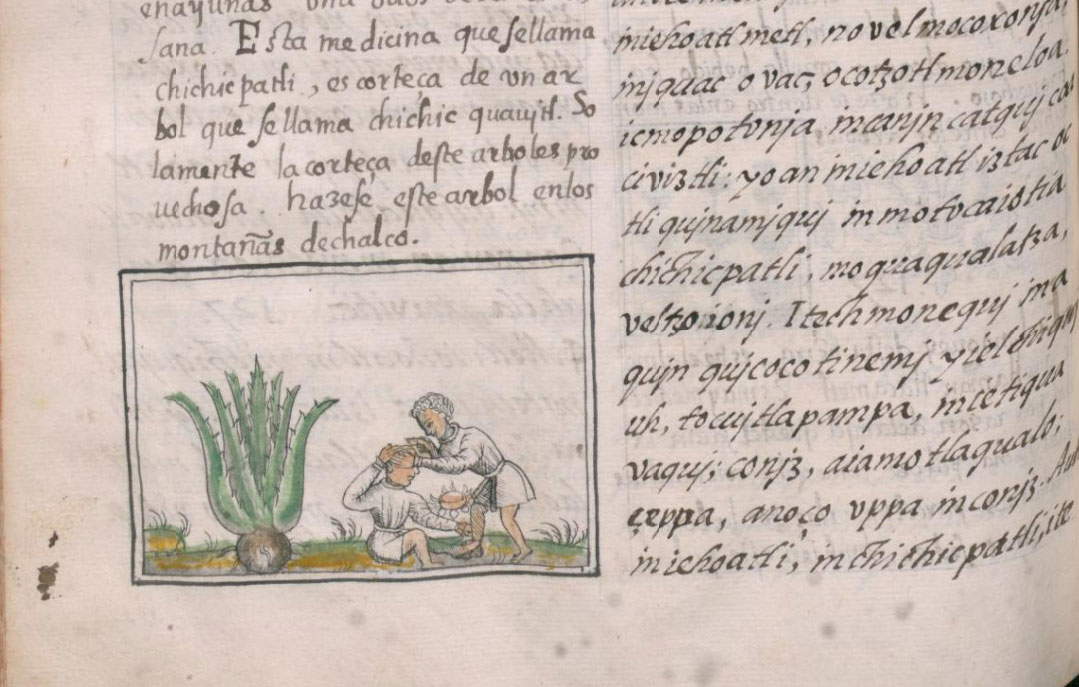 sana. Esta medicina que sellama
chichicpatli, es corteca de vn ar
bol que sellama chichic quauitl. So
lamente la corteça deste arbol es pro
uechosa. hazese este arbol enlos
montañas dechalco.
miehoatl metl, no vel mocoxonja,
injqaac ovac, ocotzotl moneloa.
icmopotonja, incanjn catquj coa
civiztli: yoan miehoatl iztac oc
tli qujnamjquj in motocaiotia
chichicpatli, moquaqualatza,
veltzoionj. Itech monequj in a
qujn qujcocotinemj yielchiqu
uh, tocujtlapampa, incetiqua
vaquj; conjz, aiamo tlaqualo;
ceppa, anoço vppa in conjz. Auh
miehoatli, in chichicpatli, ite